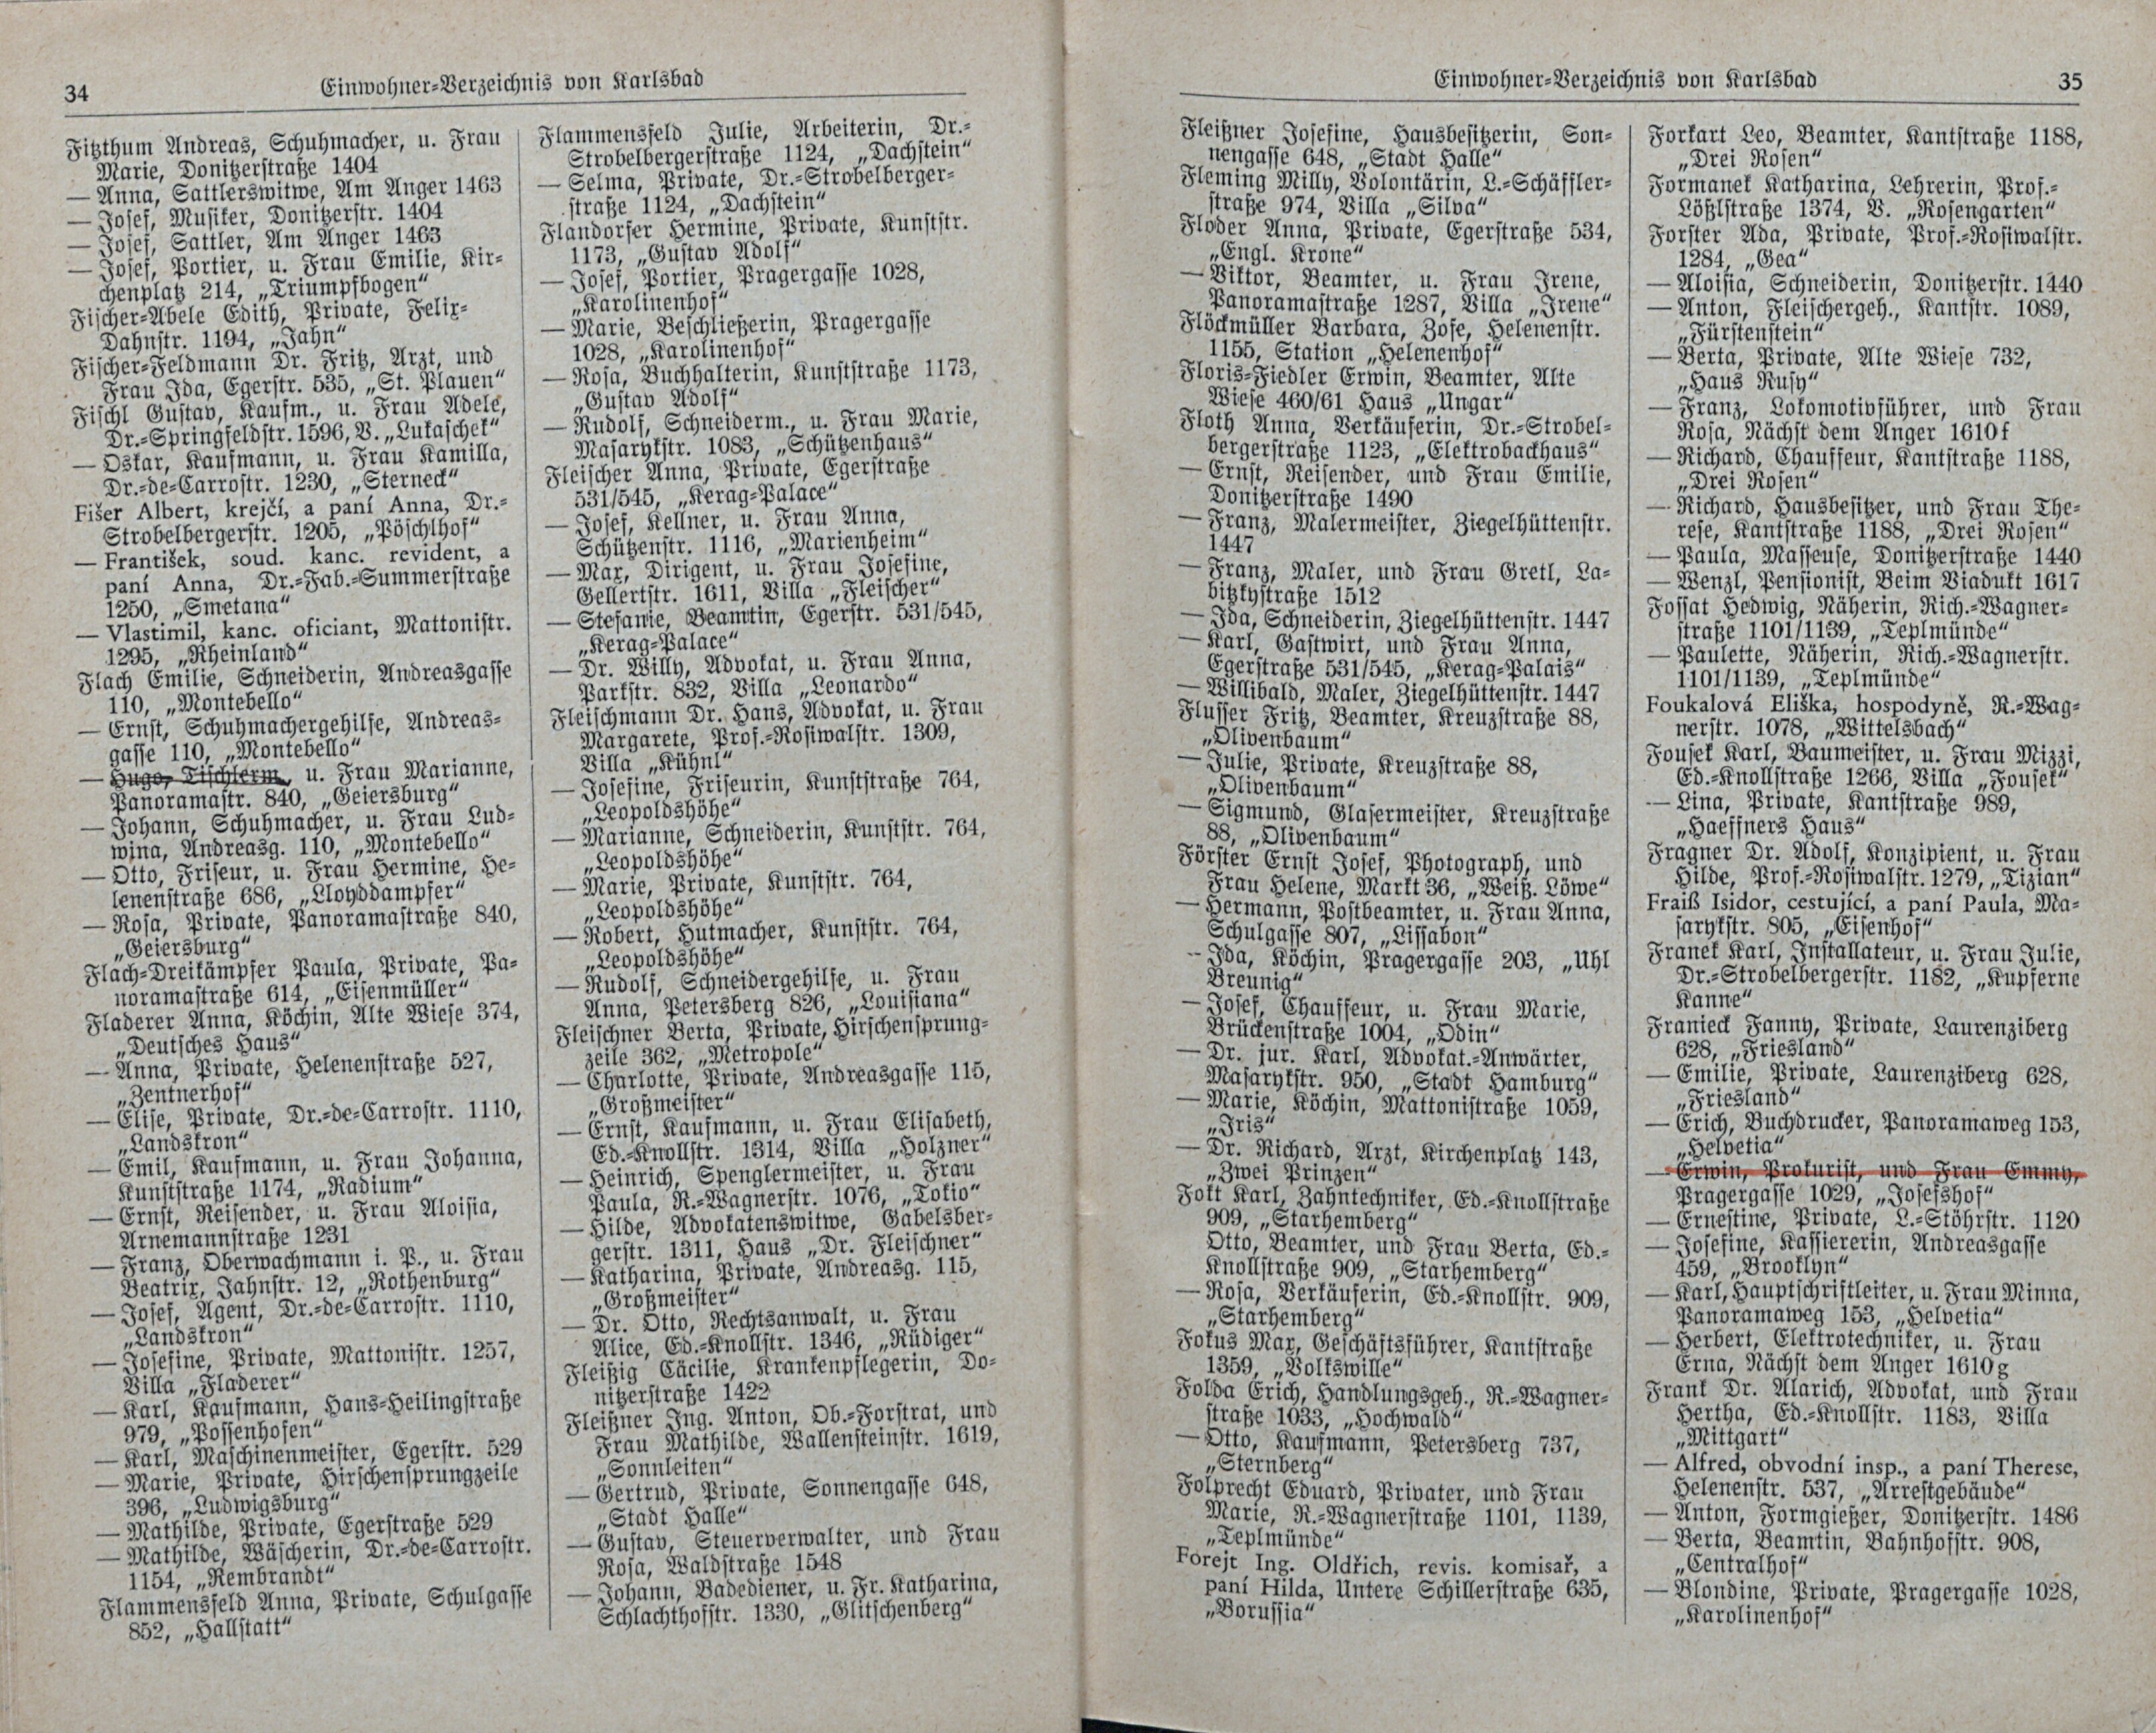 34
Einwohner-Verzeichnis von Karlsbad
Fitzthum Andreas, Schuhmacher, u. Frau
Marie, Donitzerstraße 1404
— Anna, Sattlerswitwe, Am Anger 1463
— Josef, Musiker, Donitzerstr. 1404
— Josef, Sattler, Am Anger 1463
— Josef, Portier, u. Frau Emilie, Kir-
chenplatz 214, „Triumpfbogen“
Fischer-Abele Edith, Private, Felix-
Dahnstr. 1194, „Jahn“
Fischer-Feldmann Dr. Fritz, Arzt, und
Frau Ida, Egerstr. 535, „St. Plauen“
Fischl Gustav, Kaufm., u. Frau Adele,
Dr.-Springfeldstr. 1596, V. „Lukaschek“
— Oskar, Kaufmann, u. Frau Kamilla,
Dr.-de-Carrostr. 1230, „Sterneck“
Fišer Albert, krejčí, a paní Anna, Dr.-
Strobelbergerstr. 1205, „Pöschlhof“
— František, soud. kanc. revident, a
paní Anna, Dr.-Fab.-Summerstraße
1250, „Smetana“
— Vlastimil, kanc. oficiant, Mattonistr.
1295, „Rheinland“
Flach Emilie, Schneiderin, Andreasgasse
110, „Montebello“
— Ernst, Schuhmachergehilfe, Andreas-
gasse 110, „Montebello“
— Hugo, Tischlerm., u. Frau Marianne,
Panoramastr. 840, „Geiersburg“
— Johann, Schuhmacher, u. Frau Lud-
wina, Andreasg. 110, „Montebello“
— Otto, Friseur, u. Frau Hermine, He-
lenenstraße 686, „Lloyddampfer“
— Rosa, Private, Panoramastraße 840,
„Geiersburg“
Flach-Dreikämpfer Paula, Private, Pa-
noramastraße 614, „Eisenmüller“
Fladerer Anna, Köchin, Alte Wiese 374,
„Deutsches Haus“
— Anna, Private, Helenenstraße 527,
„Zentnerhof“
— Elise, Private, Dr.-de-Carrostr. 1110,
„Landskron“
— Emil, Kaufmann, u. Frau Johanna,
Kunststraße 1174, „Radium“
— Ernst, Reisender, u. Frau Aloisia,
Arnemannstraße 1231
— Franz, Oberwachmann i. P., u. Frau
Beatrix, Jahnstr. 12, „Rothenburg“
— Josef, Agent, Dr.-de-Carrostr. 1110,
„Landskron“
— Josefine, Private, Mattonistr. 1257,
Villa „Fladerer“
— Karl, Kaufmann, Hans-Heilingstraße
979, „Possenhofen“
— Karl, Maschinenmeister, Egerstr. 529
— Marie, Private, Hirschensprungzeile
396, „Ludwigsburg“
— Mathilde, Private, Egerstraße 529
— Mathilde, Wäscherin, Dr.-de-Carrostr.
1154, „Rembrandt“
Flammensfeld Anna, Private, Schulgasse
852, „Hallstatt“
Flammensfeld Julie, Arbeiterin, Dr.-
Strobelbergerstraße 1124, „Dachstein“
— Selma, Private, Dr.-Strobelberger-
straße 1124, „Dachstein“
Flandorfer Hermine, Private, Kunststr.
1173, „Gustav Adolf“
— Josef, Portier, Pragergasse 1028,
„Karolinenhof“
— Marie, Beschließerin, Pragergasse
1028, „Karolinenhof“
— Rosa, Buchhalterin, Kunststraße 1173,
„Gustav Adolf“
— Rudolf, Schneiderm., u. Frau Marie,
Masarykstr. 1083, „Schützenhaus“
Fleischer Anna, Private, Egerstraße
531/545, „Kerag-Palace“
— Josef, Kellner, u. Frau Anna,
Schützenstr. 1116, „Marienheim“
— Max, Dirigent, u. Frau Josefine,
Gellertstr. 1611, Villa „Fleischer“
— Stefanie, Beamtin, Egerstr. 531/545,
„Kerag-Palace“
— Dr. Willy, Advokat, u. Frau Anna,
Parkstr. 832, Villa „Leonardo“
Fleischmann Dr. Hans, Advokat, u. Frau
Margarete, Prof.-Rosiwalstr. 1309,
Villa „Kühnl“
— Josefine, Friseurin, Kunststraße 764,
„Leopoldshöhe“
— Marianne, Schneiderin, Kunststr. 764,
„Leopoldshöhe“
— Marie, Private, Kunststr. 764,
„Leopoldshöhe“
— Robert, Hutmacher, Kunststr. 764,
„Leopoldshöhe“
— Rudolf, Schneidergehilfe, u. Frau
Anna, Petersberg 826, „Louisiana“
Fleischner Berta, Private, Hirschensprung-
zeile 362, „Metropole“
— Charlotte, Private, Andreasgasse 115,
„Großmeister“
— Ernst, Kaufmann, u. Frau Elisabeth,
Ed.-Knollstr. 1314, Villa „Holzner“
— Heinrich, Spenglermeister, u. Frau
Paula, R.-Wagnerstr. 1076, „Tokio“
— Hilde, Advokatenswitwe, Gabelsber-
gerstr. 1311, Haus „Dr. Fleischner“
— Katharina, Private, Andreasg. 115,
„Großmeister“
— Dr. Otto, Rechtsanwalt, u. Frau
Alice, Ed.-Knollstr. 1346, „Rüdiger“
Fleißig Cäcilie, Krankenpflegerin, Do-
nitzerstraße 1422
Fleißner Ing. Anton, Ob.-Forstrat, und
Frau Mathilde, Wallensteinstr. 1619,
„Sonnleiten“
— Gertrud, Private, Sonnengasse 648,
„Stadt Halle“
— Gustav, Steuerverwalter, und Frau
Rosa, Waldstraße 1548
— Johann, Badediener, u. Fr. Katharina,
Schlachthofstr. 1330, „Glitschenberg“
Einwohner-Verzeichnis von Karlsbad
35
Fleißner Josefine, Hausbesitzerin, Son-
nengasse 648, „Stadt Halle“
Fleming Milly, Volontärin, L.-Schäffler-
straße 974, Villa „Silva“
Floder Anna, Private, Egerstraße 534,
„Engl. Krone“
— Viktor, Beamter, u. Frau Irene,
Panoramastraße 1287, Villa „Irene“
Flöckmüller Barbara, Zofe, Helenenstr.
1155, Station „Helenenhof“
Floris-Fiedler Erwin, Beamter, Alte
Wiese 460/61 Haus „Ungar“
Floth Anna, Verkäuferin, Dr.-Strobel-
bergerstraße 1123, „Elektrobackhaus“
— Ernst, Reisender, und Frau Emilie,
Donitzerstraße 1490
— Franz, Malermeister, Ziegelhüttenstr.
1447
— Franz, Maler, und Frau Gretl, La-
bitzkystraße 1512
— Ida, Schneiderin, Ziegelhüttenstr. 1447
— Karl, Gastwirt, und Frau Anna,
Egerstraße 531/545, „Kerag-Palais“
— Willibald, Maler, Ziegelhüttenstr. 1447
Flusser Fritz, Beamter, Kreuzstraße 88,
„Olivenbaum“
— Julie, Private, Kreuzstraße 88,
„Olivenbaum“
— Sigmund, Glasermeister, Kreuzstraße
88, „Olivenbaum“
Förster Ernst Josef, Photograph, und
Frau Helene, Markt 36, „Weiß. Löwe“
— Hermann, Postbeamter, u. Frau Anna,
Schulgasse 807, „Lissabon“
-- Ida, Köchin, Pragergasse 203, „Uhl
Breunig“
— Josef, Chauffeur, u. Frau Marie,
Brückenstraße 1004, „Odin“
— Dr. jur. Karl, Advokat.-Anwärter,
Masarykstr. 950, „Stadt Hamburg“
— Marie, Köchin, Mattonistraße 1059,
„Iris“
— Dr. Richard, Arzt, Kirchenplatz 143,
„Zwei Prinzen“
Fokt Karl, Zahntechniker, Ed.-Knollstraße
909, „Starhemberg“
Otto, Beamter, und Frau Berta, Ed.-
Knollstraße 909, „Starhemberg“
— Rosa, Verkäuferin, Ed.-Knollstr. 909,
„Starhemberg“
Fokus Max, Geschäftsführer, Kantstraße
1359, „Volkswille“
Folda Erich, Handlungsgeh., R.-Wagner-
straße 1033, „Hochwald“
— Otto, Kaufmann, Petersberg 737,
„Sternberg“
Folprecht Eduard, Privater, und Frau
Marie, R.-Wagnerstraße 1101, 1139,
„Teplmünde“
Forejt Ing. Oldřich, revis. komisař, a
paní Hilda, Untere Schillerstraße 635,
„Borussia“
Forkart Leo, Beamter, Kantstraße 1188,
„Drei Rosen“
Formanek Katharina, Lehrerin, Prof.-
Lößlstraße 1374, V. „Rosengarten“
Forster Ada, Private, Prof.-Rosiwalstr.
1284, „Gea“
— Aloisia, Schneiderin, Donitzerstr. 1440
— Anton, Fleischergeh., Kantstr. 1089,
„Fürstenstein“
— Berta, Private, Alte Wiese 732,
„Haus Rusy“
— Franz, Lokomotivführer, und Frau
Rosa, Nächst dem Anger 1610f
— Richard, Chauffeur, Kantstraße 1188,
„Drei Rosen“
— Richard, Hausbesitzer, und Frau The-
rese, Kantstraße 1188, „Drei Rosen“
— Paula, Masseuse, Donitzerstraße 1440
— Wenzl, Pensionist, Beim Viadukt 1617
Fossat Hedwig, Näherin, Rich.-Wagner-
straße 1101/1139, „Teplmünde“
— Paulette, Näherin, Rich.-Wagnerstr.
1101/1139, „Teplmünde“
Foukalová Eliška, hospodyně, R.-Wag-
nerstr. 1078, „Wittelsbach“
Fousek Karl, Baumeister, u. Frau Mizzi,
Ed.-Knollstraße 1266, Villa „Fousek“
— Lina, Private, Kantstraße 989,
„Haeffners Haus“
Fragner Dr. Adolf, Konzipient, u. Frau
Hilde, Prof.-Rosiwalstr. 1279, „Tizian“
Fraiß Isidor, cestující, a paní Paula, Ma-
sarykstr. 805, „Eisenhof“
Franek Karl, Installateur, u. Frau Julie,
Dr.-Strobelbergerstr. 1182, „Kupferne
Kanne“
Franieck Fanny, Private, Laurenziberg
628, „Friesland“
— Emilie, Private, Laurenziberg 628,
„Friesland“
— Erich, Buchdrucker, Panoramaweg 153,
„Helvetia“
— Erwin, Prokurist, und Frau Emmy,
Pragergasse 1029, „Josefshof“
— Ernestine, Private, L.-Stöhrstr. 1120
— Josefine, Kassiererin, Andreasgasse
459, „Brooklyn“
— Karl, Hauptschriftleiter, u. Frau Minna,
Panoramaweg 153, „Helvetia“
— Herbert, Elektrotechniker, u. Frau
Erna, Nächst dem Anger 1610g
Frank Dr. Alarich, Advokat, und Frau
Hertha, Ed.-Knollstr. 1183, Villa
„Mittgart“
— Alfred, obvodní insp., a paní Therese,
Helenenstr. 537, „Arrestgebäude“
— Anton, Formgießer, Donitzerstr. 1486
— Berta, Beamtin, Bahnhofstr. 908,
„Centralhof“
— Blondine, Private, Pragergasse 1028,
„Karolinenhof“